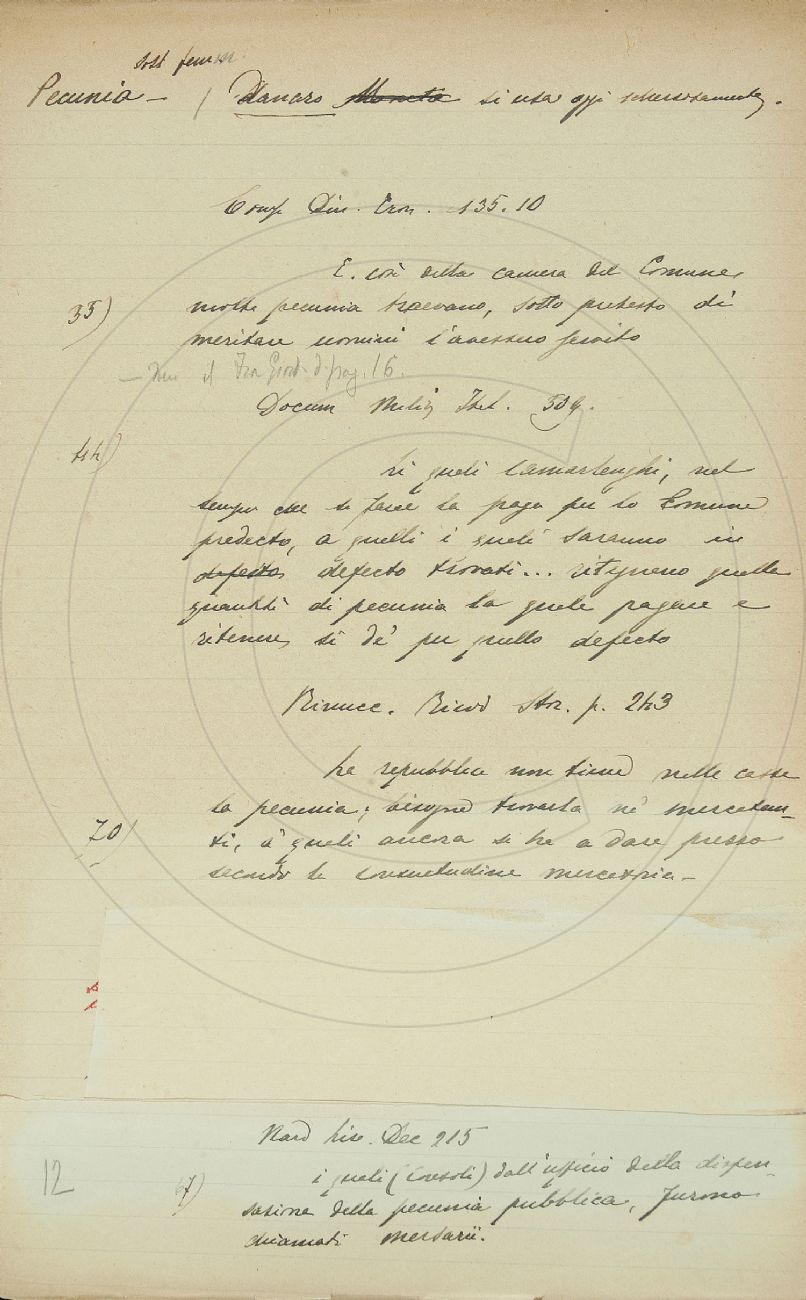 sost femm.
Pecunia — / Danaro Moneta si usa oggi scherzosamente.
Comp Din. Cron. 135.10
E così della camera del Comune,
35)
molta pecunia traevano, sotto pretesto di
meritare uomini l'avessero servito
— il pag. 16.
Docum Miliz Ital. 509.
44)
li quali camarlenghi, nel
tempo che si farà la paga per lo Comune
predecto, a quelli i quali saranno in
defecto defecto trovati... ritegneno quella
quantità di pecunia la quale pagare e
ritenere si dè per quello defecto
Rinucc. Ricord Stor. p. 243
La repubblica non tiene nelle casse
la pecunia; bisogna trovarla ne' mercatan-
70)
ti, a' quali ancora si ha a dare presso
secondo la consuetudine mercatoria —
Nard Liv. Dec 215
12
67)
i quali (Consoli) dall'ufficio della dispen-
sazione della pecunia pubblica, furono
chiamati mensarii.